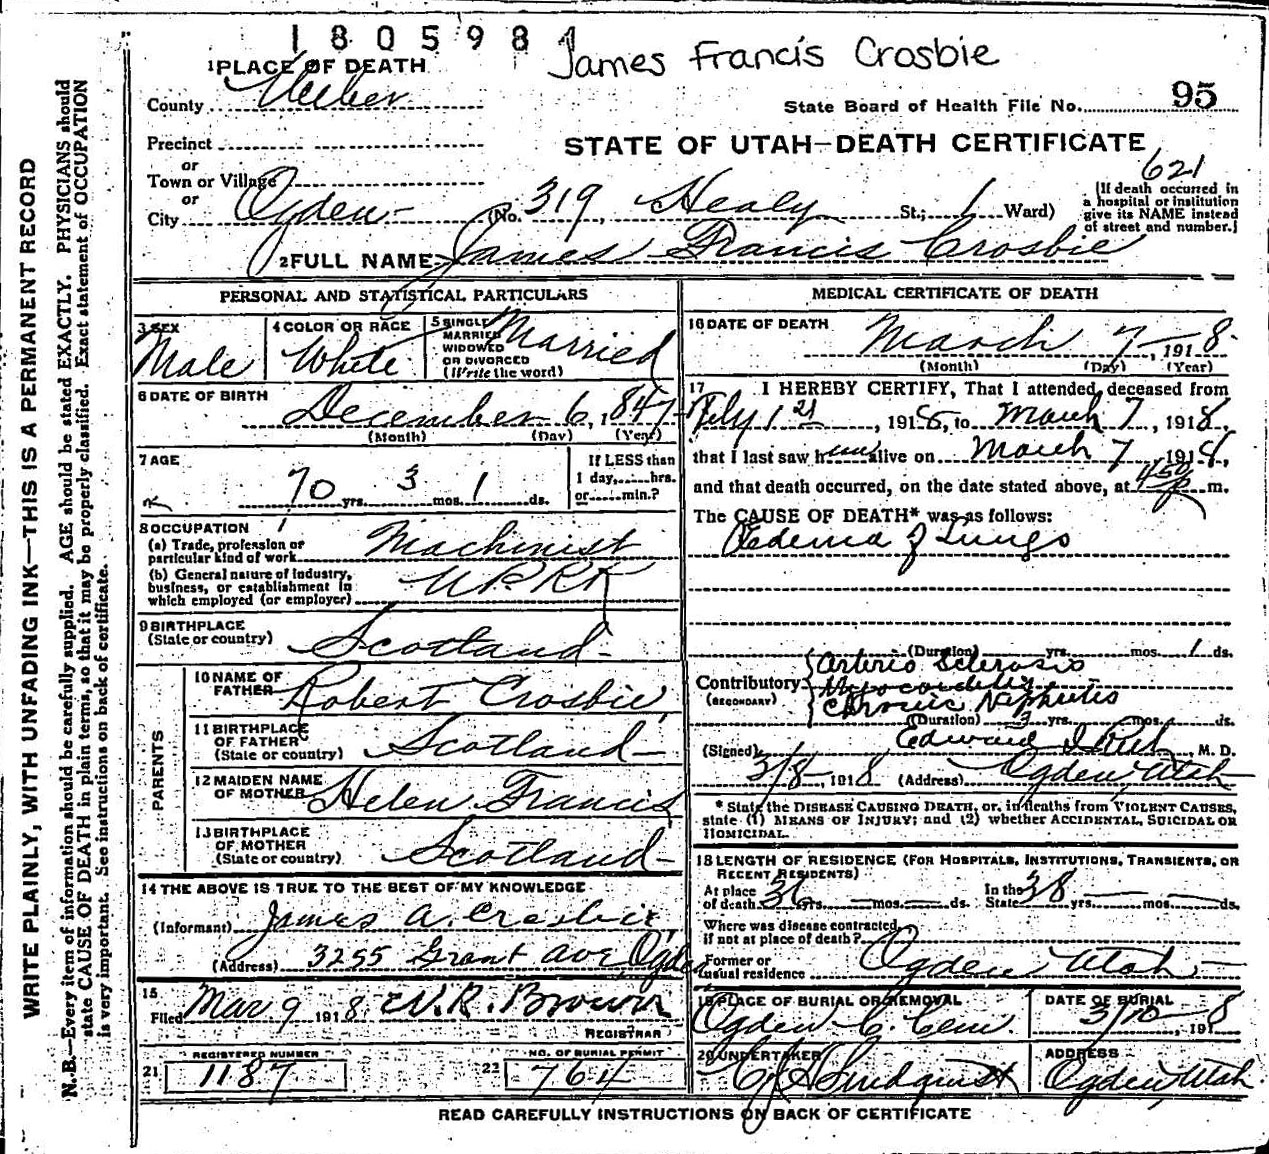 1805981
James Francis Crosbie
1 PLACE OF DEATH
County Weber
State Board of Health File No. 95
Precinct
STATE OF UTAH—DEATH CERTIFICATE
or
Town or Village
621
or
City Ogden (No. 319 Healy St.; 1 Ward)
(If death occurred in
a hospital or institution
give its NAME instead
of street and number.)
2 FULL NAME James Francis Crosbie
PERSONAL AND STATISTICAL PARTICULARS
3 SEX
Male
4 COLOR OR RACE
White
5 SINGLE
MARRIED
WIDOWED
OR DIVORCED
(Write the word)
Married
6 DATE OF BIRTH
December 6, 1847
(Month) (Day) (Year)
7 AGE
70 yrs. 3 mos. 1 ds.
If LESS than
1 day,......hrs.
or......min.?
8 OCCUPATION
(a) Trade, profession or
particular kind of work Machinist
(b) General nature of industry,
business, or establishment in
which employed (or employer) U.P.RR
9 BIRTHPLACE
(State or country) Scotland
PARENTS
10 NAME OF
FATHER Robert Crosbie
11 BIRTHPLACE
OF FATHER
(State or country) Scotland
12 MAIDEN NAME
OF MOTHER Helen Francis
13 BIRTHPLACE
OF MOTHER
(State or country) Scotland
14 THE ABOVE IS TRUE TO THE BEST OF MY KNOWLEDGE
(Informant) James A. Crosbie
(Address) 3255 Grant Ave Ogden
15
Filed Mar 9 1918 W.R. Brown
REGISTRAR
REGISTERED NUMBER
21 1187
NO. OF BURIAL PERMIT
22 764
MEDICAL CERTIFICATE OF DEATH
16 DATE OF DEATH
March 7, 1918
(Month) (Day) (Year)
17 I HEREBY CERTIFY, That I attended deceased from
1918, to March 7, 1918,
that I last saw him alive on March 7, 1918,
and that death occurred, on the date stated above, at 450 p m.
The CAUSE OF DEATH* was as follows:
Oedema of Lungs
(Duration) yrs. mos. 1 ds.
Contributory
(SECONDARY)
Arterio Sclerosis
Myocarditis
Chronic Nephritis
(Duration) 3 yrs. mos. ds.
(Signed) Edward I. Rich, M. D.
3/8, 1918 (Address) Ogden Utah
* State the DISEASE CAUSING DEATH, or, in deaths from VIOLENT CAUSES,
state (1) MEANS OF INJURY; and (2) whether ACCIDENTAL, SUICIDAL OR
HOMICIDAL.
18 LENGTH OF RESIDENCE (FOR HOSPITALS, INSTITUTIONS, TRANSIENTS, OR
RECENT RESIDENTS)
At place
of death 36 yrs. — mos. — ds. In the
State 38 yrs. — mos. — ds.
Where was disease contracted,
if not at place of death?
Former or
usual residence Ogden Utah
19 PLACE OF BURIAL OR REMOVAL
Ogden C. Cem.
DATE OF BURIAL
3/10, 1918
20 UNDERTAKER
Lindquist
ADDRESS
Ogden, Utah
READ CAREFULLY INSTRUCTIONS ON BACK OF CERTIFICATE
WRITE PLAINLY, WITH UNFADING INK—THIS IS A PERMANENT RECORD
N.B.—Every item of information should be carefully supplied. AGE should be stated EXACTLY. PHYSICIANS should
state CAUSE OF DEATH in plain terms, so that it may be properly classified. Exact statement of OCCUPATION
is very important. See instructions on back of certificate.